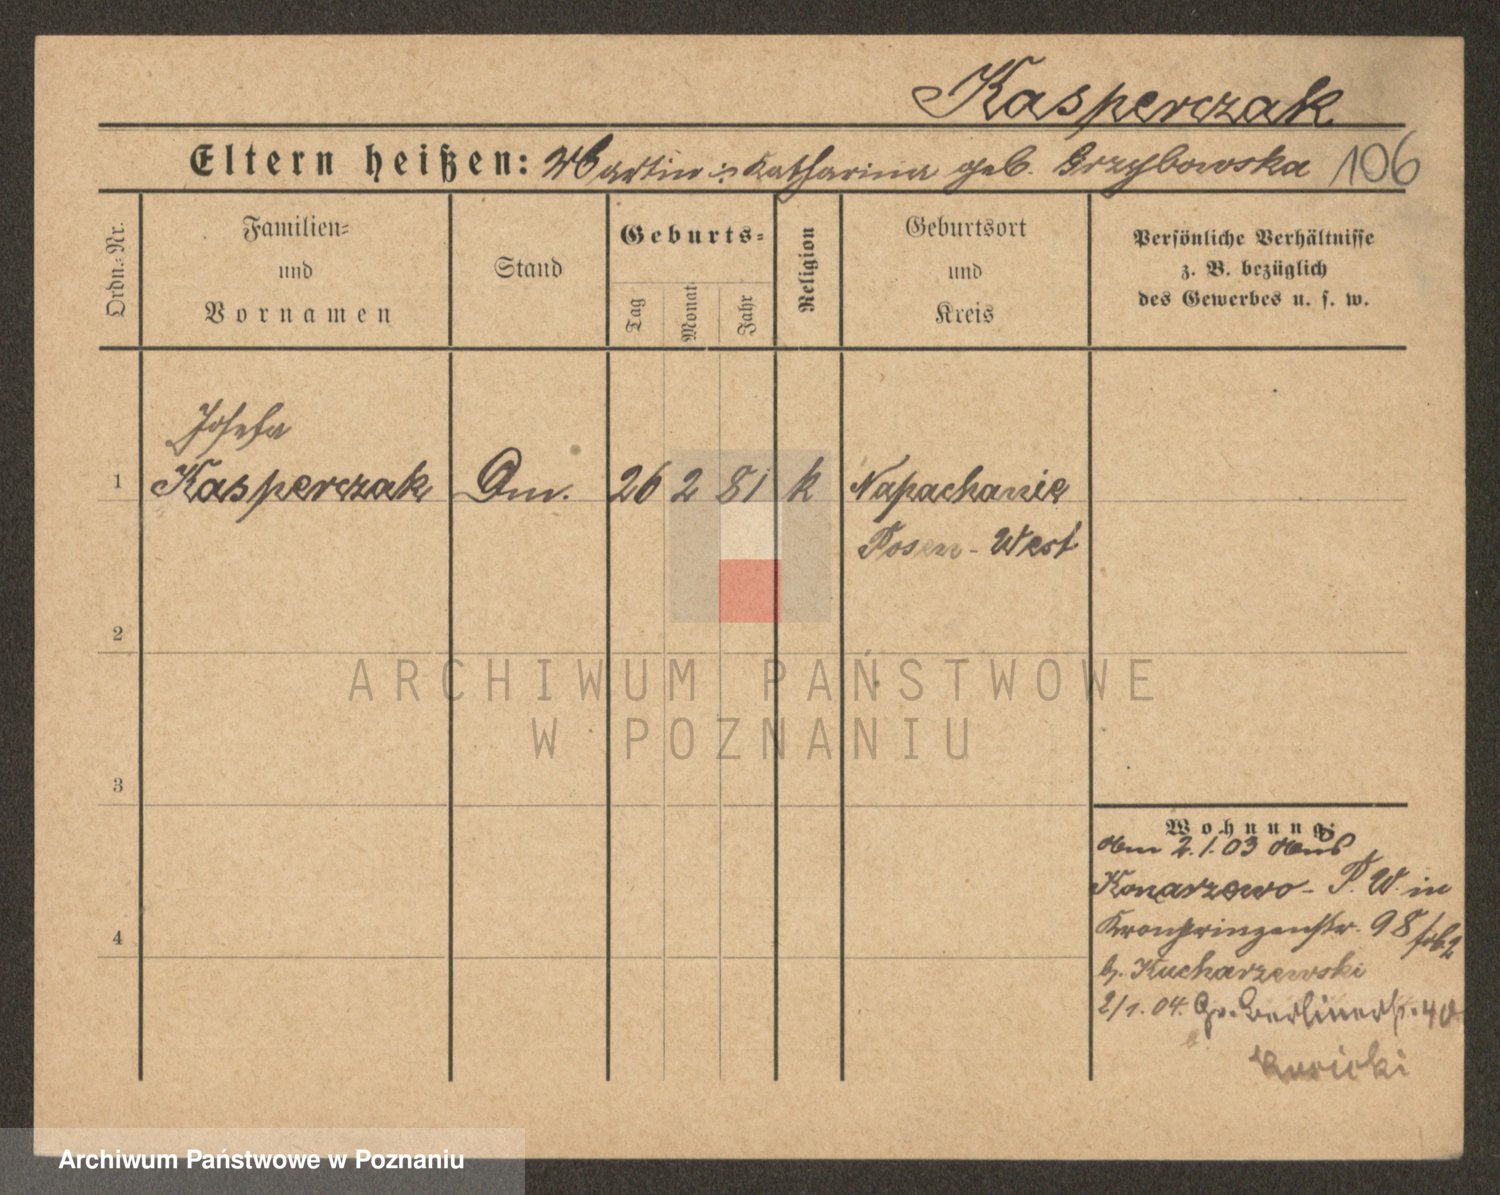 Kasperczak
Eltern heißen: Martin u. Katharina geb. Grzybowska 106
Ordn.-Nr.
Familien-
und
Vornamen
Stand
Geburts-
Tag
Monat
Jahr
Religion
Geburtsort
und
Kreis
Persönliche Verhältnisse
z. B. bezüglich
des Gewerbes u. s. w.
Josefa
1 Kasperczak Dm. 26 2 81 k Napachanie
Posen-West
2
3
4
ARCHIWUM PAŃSTWOWE
W POZNANIU
Wohnung:
Am 2.1.03 aus
Konarzewo - P. W. in
Kronprinzenstr. 98
b. Kucharzewski
2/1. 04. Gr. Berlinerstr. 40
Archiwum Państwowe w Poznaniu